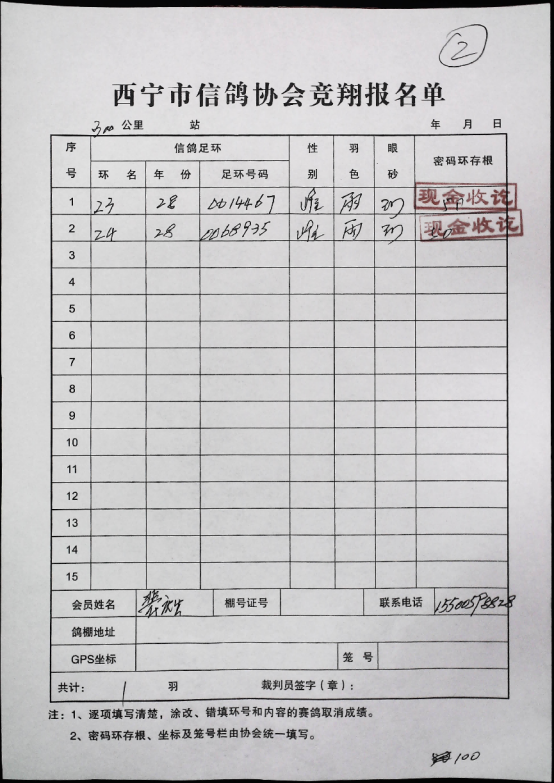 2
西宁市信鸽协会竞翔报名单
300 公里 站 年 月 日
序号 信鸽足环 性别 羽色 眼砂 密码环存根
环名 年份 足环号码
1 23 28 0014467 雄 雨 砂 现金收讫
2 24 28 0068935 雄 雨 砂 现金收讫
3
4
5
6
7
8
9
10
11
12
13
14
15
会员姓名 棚号证号 联系电话
鸽棚地址
GPS坐标 笼号
共计： 1 羽 裁判员签字（章）：
注：1、逐项填写清楚，涂改、错填环号和内容的赛鸽取消成绩。
2、密码环存根、坐标及笼号栏由协会统一填写。
100